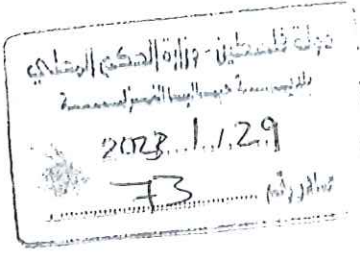 دولة فلسطين - وزارة الحكم المحلي
2023/1/29
صادر رقم 73